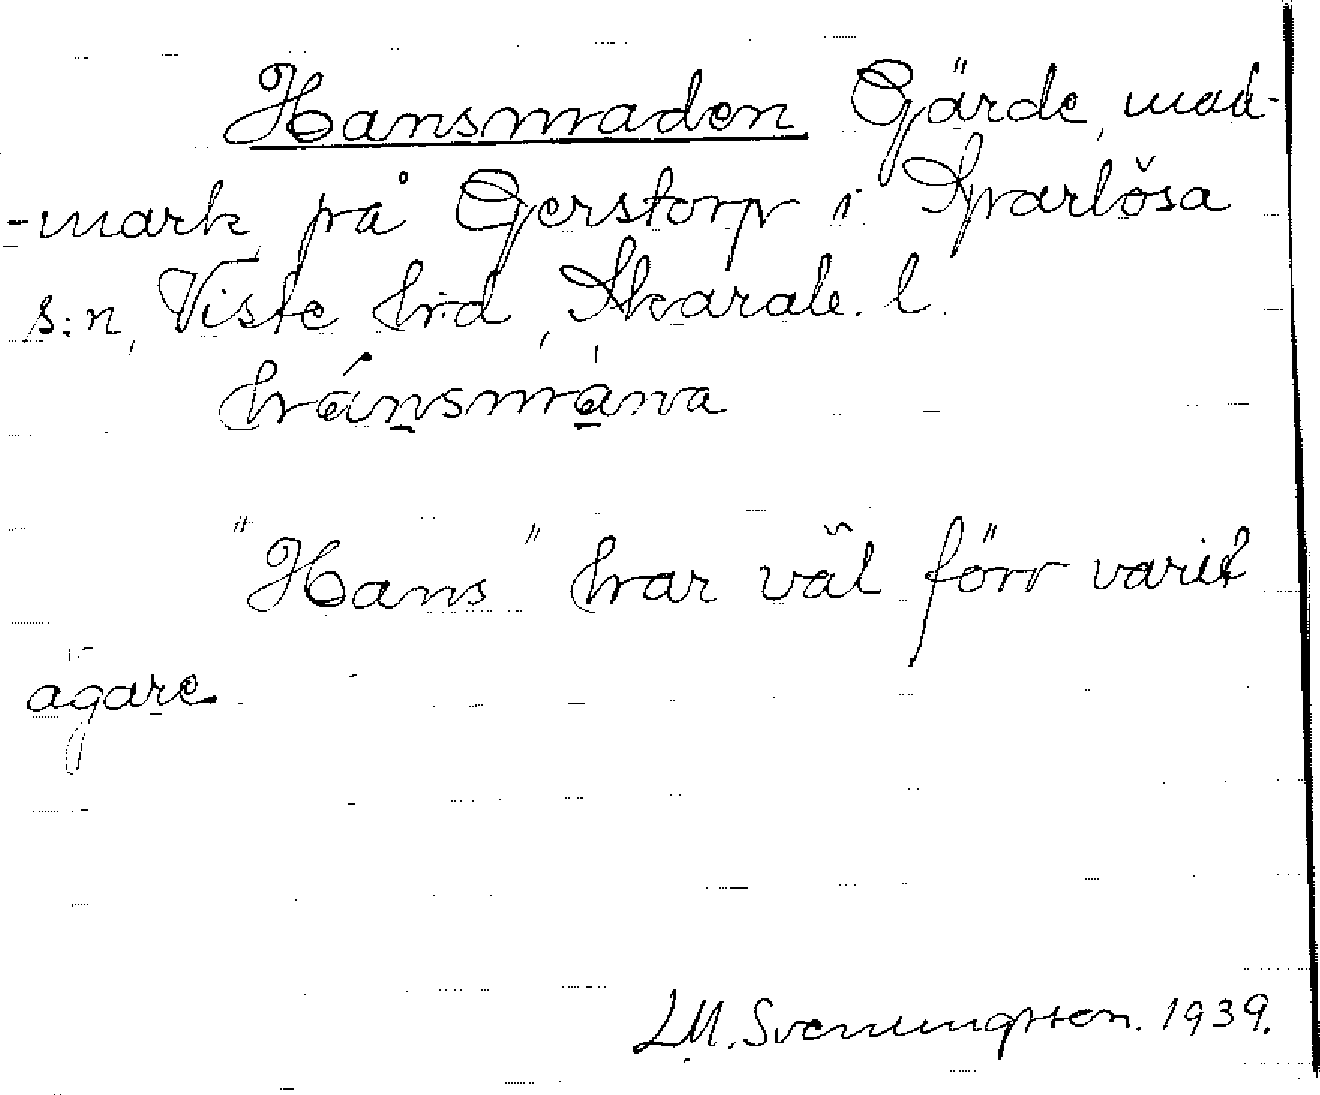 Hansmaden Gärde, mad-
-mark på Gerstorp i Sparlösa
s:n, Viste hrd, Skarab. l.
hánsmàwa
"Hans" har väl förr varit
ägare
LM. Svenungsson. 1939.